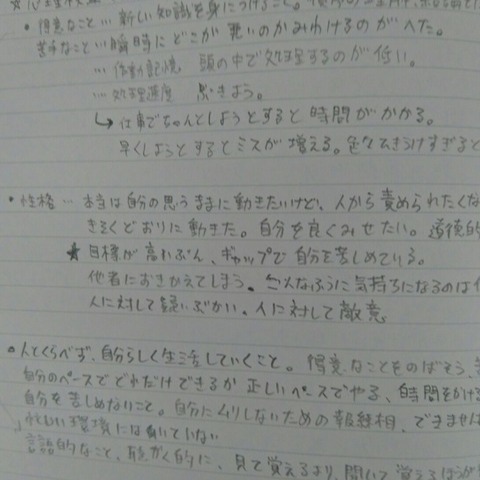 ・得意なこと… 新しい知識を身につけること。
苦手なこと… 瞬時にどこが悪いのかみわけるのがへた。
… 作動記憶 頭の中で処理するのが低い。
… 処理速度
↳仕事でちゃんとしようとすると時間がかかる。
早くしようとするとミスが増える。
・性格… 本当は自分の思うままに動きたいけど、人から責められたくな
きそくどおりに動きた。自分を良くみせたい。道徳的
★目標が高いぶん、ギャップで自分を苦しめている。
他者におきかえてしまう。こんなふうに気持ちになるのは
人に対して疑いぶかい。人に対して敵意
・人とくらべず、自分らしく生活していくこと。得意なことをのばそう、
自分のペースでどれだけできるか 正しいペースでやる、時間をかける
自分を苦しめないこと。自分にムリしないための報連相、できません
環境には向いていない
言語的なこと、聴かく的に、見て覚えるより、聞いて覚えるほうが